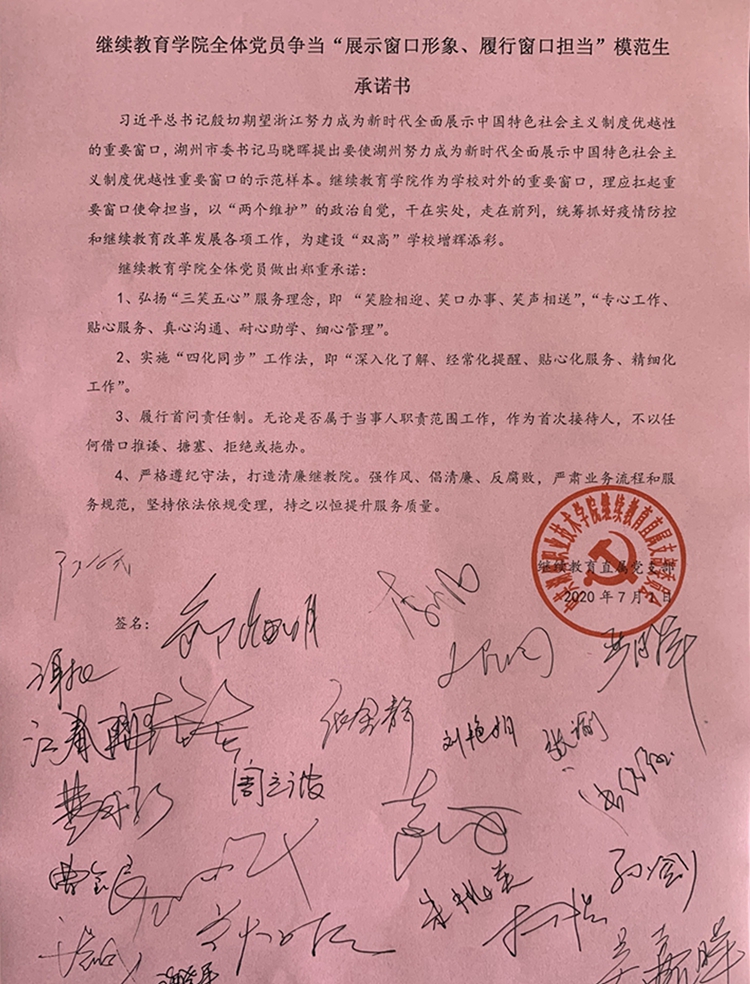 继续教育学院全体党员争当“展示窗口形象、履行窗口担当”模范生
承诺书
习近平总书记殷切期望浙江努力成为新时代全面展示中国特色社会主义制度优越性
的重要窗口，湖州市委书记马晓晖提出要使湖州努力成为新时代全面展示中国特色社会主
义制度优越性重要窗口的示范样本。继续教育学院作为学校对外的重要窗口，理应扛起重
要窗口使命担当，以“两个维护”的政治自觉，干在实处，走在前列，统筹抓好疫情防控
和继续教育改革发展各项工作，为建设“双高”学校增辉添彩。
继续教育学院全体党员做出郑重承诺：
1、弘扬“三笑五心”服务理念，即 “笑脸相迎、笑口办事、笑声相送”，“专心工作、
贴心服务、真心沟通、耐心助学、细心管理”。
2、实施“四化同步”工作法，即“深入化了解、经常化提醒、贴心化服务、精细化
工作”。
3、履行首问责任制。无论是否属于当事人职责范围工作，作为首次接待人，不以任
何借口推诿、搪塞、拒绝或拖办。
4、严格遵纪守法，打造清廉继教院。强作风、倡清廉、反腐败，严肃业务流程和服
务规范，坚持依法依规受理，持之以恒提升服务质量。
职业技术学院继续教育直属支部委员会
继续教育直属党支部
2020 年 7 月 1 日
签名：
江春
刘艳娟
周立波
孙剑